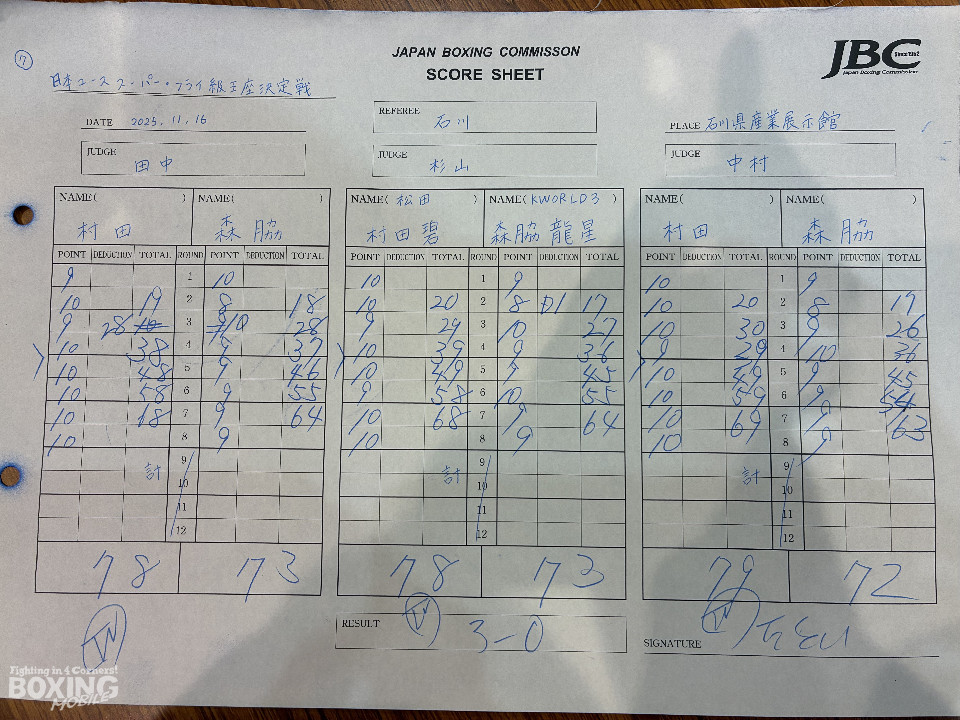 ⑦
JAPAN BOXING COMMISSON
SCORE SHEET
JBC Since 1952
Japan Boxing Commission
日本ユース スーパー・フライ級王座決定戦
DATE 2025.11.16
REFEREE 石川
PLACE 石川県産業展示館
JUDGE 田中
JUDGE 杉山
JUDGE 中村
NAME( ) NAME( )
村田 森脇
POINT DEDUCTION TOTAL ROUND POINT DEDUCTION TOTAL
9 1 10
10 19 2 8 18
9 28 3 10 28
10 38 4 9 37
10 48 5 9 46
10 58 6 9 55
10 68 7 9 64
10 8 9
計 9
10
11
12
78 73
NAME( 松田 ) NAME( KWORLD3 )
村田碧 森脇龍星
POINT DEDUCTION TOTAL ROUND POINT DEDUCTION TOTAL
10 1 9
10 20 2 8 D1 17
9 29 3 10 27
10 39 4 9 36
10 49 5 9 45
9 58 6 10 55
10 68 7 9 64
10 8 9
計 9
10
11
12
78 73
NAME( ) NAME( )
村田 森脇
POINT DEDUCTION TOTAL ROUND POINT DEDUCTION TOTAL
10 1 9
10 20 2 8 17
10 30 3 9 26
9 39 4 10 36
10 49 5 9 45
10 59 6 9 54
10 69 7 9 63
10 8 9
計 9
10
11
12
79 72
W
W
W
RESULT 3-0
SIGNATURE
Fighting in 4 Corners!
BOXING
MOBILE